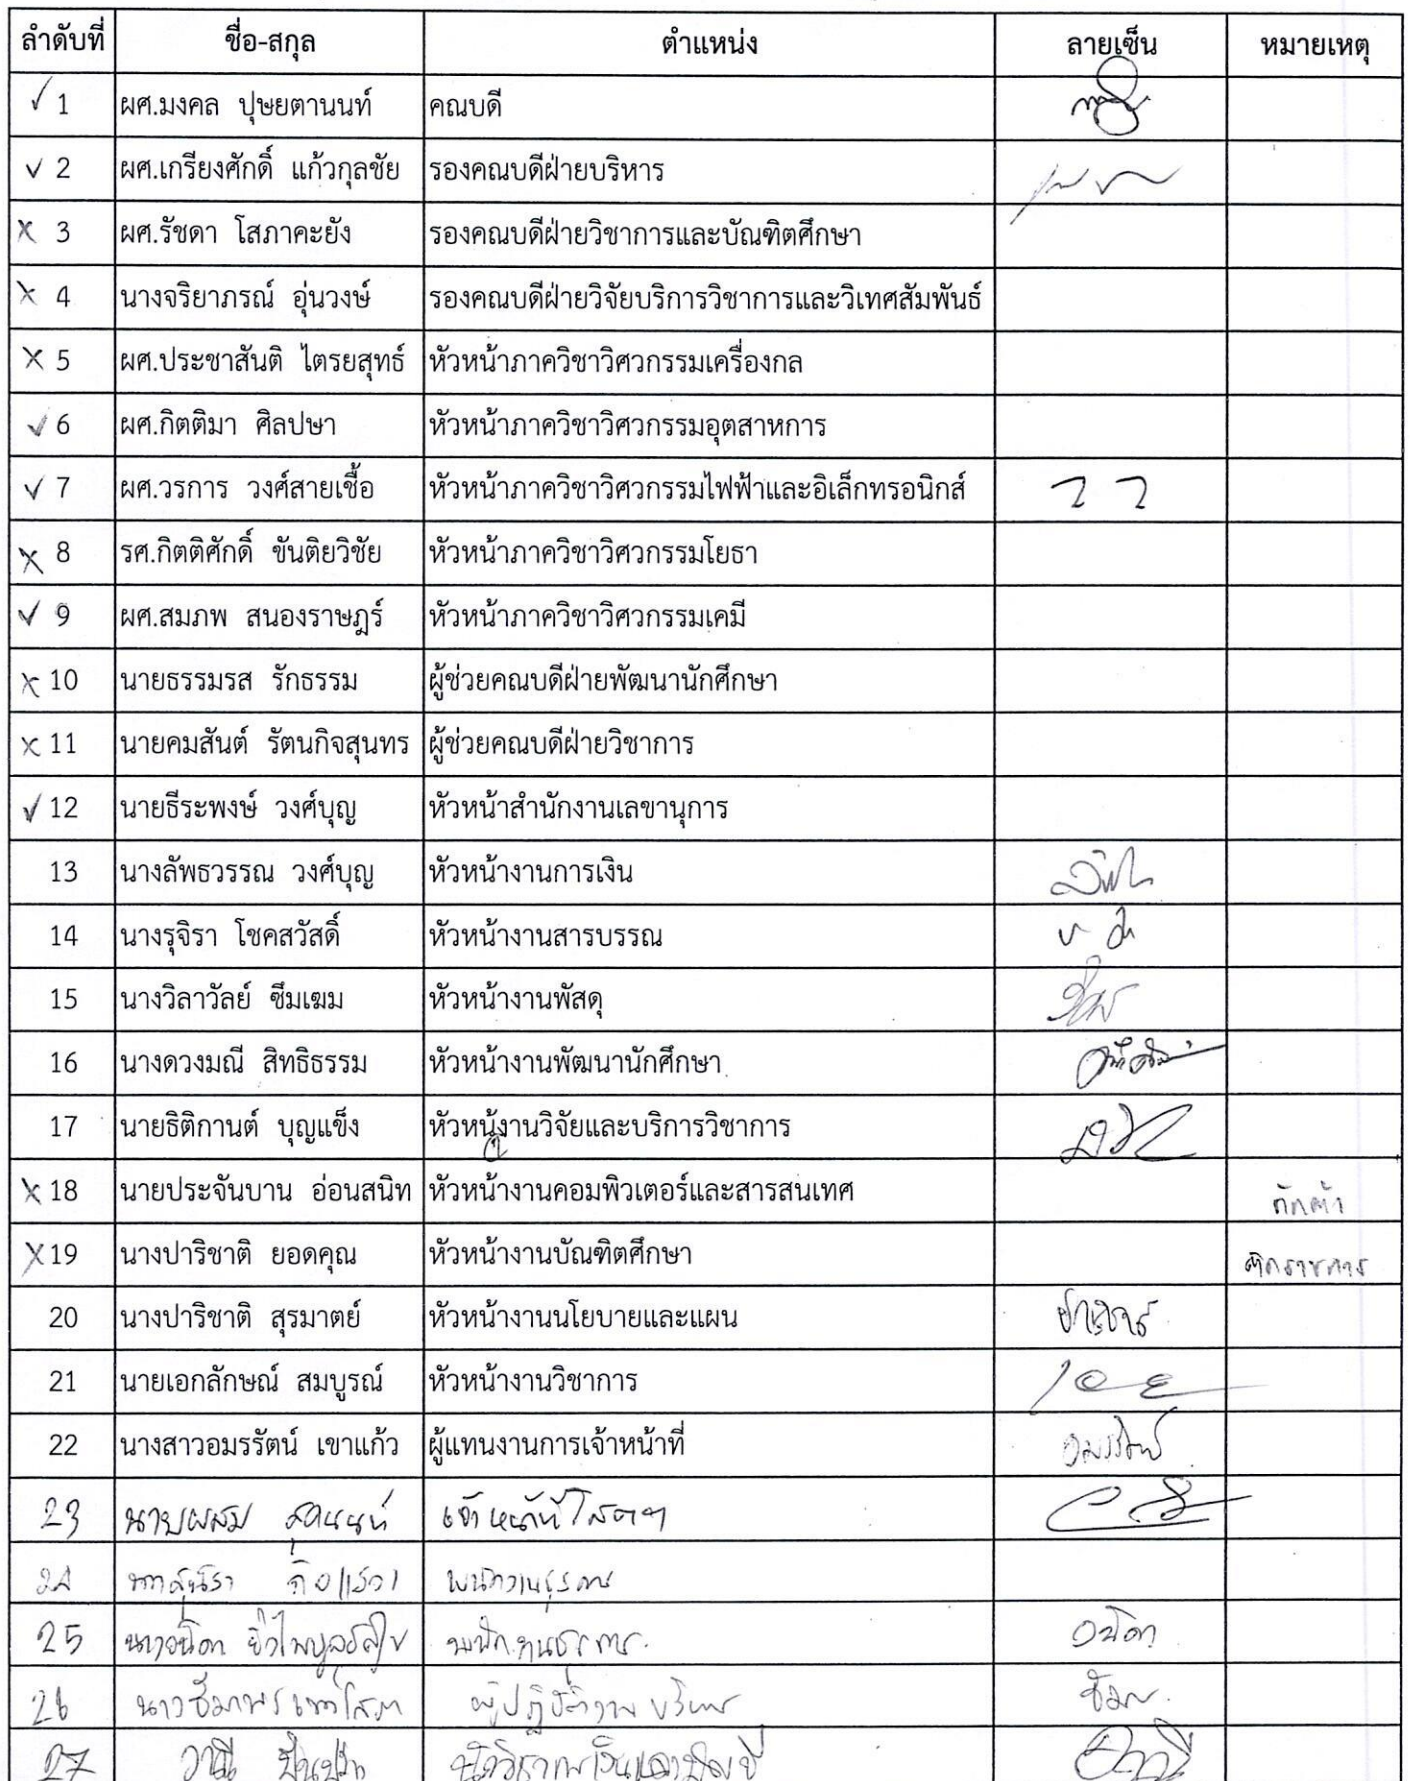 ลำดับที่ ชื่อ-สกุล ตำแหน่ง ลายเซ็น หมายเหตุ
✓ 1 ผศ.มงคล ปุษยตานนท์ คณบดี
✓ 2 ผศ.เกรียงศักดิ์ แก้วกุลชัย รองคณบดีฝ่ายบริหาร
✗ 3 ผศ.รัชดา โสภาคะยัง รองคณบดีฝ่ายวิชาการและบัณฑิตศึกษา
✗ 4 นางจริยาภรณ์ อุ่นวงษ์ รองคณบดีฝ่ายวิจัยบริการวิชาการและวิเทศสัมพันธ์
✗ 5 ผศ.ประชาสันติ ไตรยสุทธ์ หัวหน้าภาควิชาวิศวกรรมเครื่องกล
✓ 6 ผศ.กิตติมา ศิลปษา หัวหน้าภาควิชาวิศวกรรมอุตสาหการ
✓ 7 ผศ.วรการ วงศ์สายเชื้อ หัวหน้าภาควิชาวิศวกรรมไฟฟ้าและอิเล็กทรอนิกส์
✗ 8 รศ.กิตติศักดิ์ ขันติยวิชัย หัวหน้าภาควิชาวิศวกรรมโยธา
✓ 9 ผศ.สมภพ สนองราษฎร์ หัวหน้าภาควิชาวิศวกรรมเคมี
✗ 10 นายธรรมรส รักธรรม ผู้ช่วยคณบดีฝ่ายพัฒนานักศึกษา
✗ 11 นายคมสันต์ รัตนกิจสุนทร ผู้ช่วยคณบดีฝ่ายวิชาการ
✓ 12 นายธีระพงษ์ วงศ์บุญ หัวหน้าสำนักงานเลขานุการ
13 นางลัพธวรรณ วงศ์บุญ หัวหน้างานการเงิน
14 นางรุจิรา โชคสวัสดิ์ หัวหน้างานสารบรรณ
15 นางวิลาวัลย์ ซึมเฆม หัวหน้างานพัสดุ
16 นางดวงมณี สิทธิธรรม หัวหน้างานพัฒนานักศึกษา
17 นายธิติกานต์ บุญแข็ง หัวหน้งานวิจัยและบริการวิชาการ
✗ 18 นายประจันบาน อ่อนสนิท หัวหน้างานคอมพิวเตอร์และสารสนเทศ
✗ 19 นางปาริชาติ ยอดคุณ หัวหน้างานบัณฑิตศึกษา ติดราชการ
20 นางปาริชาติ สุรมาตย์ หัวหน้างานนโยบายและแผน
21 นายเอกลักษณ์ สมบูรณ์ หัวหน้างานวิชาการ
22 นางสาวอมรรัตน์ เขาแก้ว ผู้แทนงานการเจ้าหน้าที่ อมรรัตน์
23 นายผสม เจ้าหน้าที่โสตฯ
24
25 นางวนิดา วนิดา
26
27 วาณี